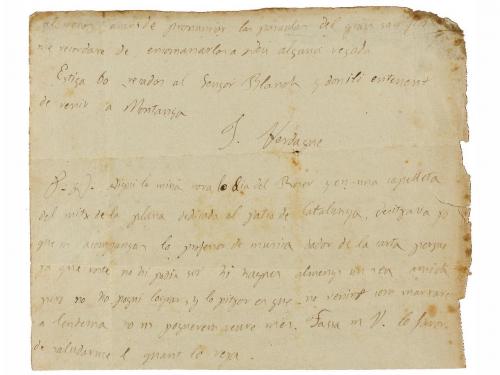 al menys avans de pronunciar las paraulas del gran
me recordare de encomanarlos a Deu alguna vegada
Estiga bo recados al Senyor Blanch y donili entenent
de venir a Montanya
J. Verdaguer
P. D. Digui la missa lo dia del Roser y en una capelleta
del mitx de la plana dedicada al patró de Catalunya, desitjava
que m acompanyas lo professor de musica dador de la carta perque
ja que vosté no hi podia ser hi hagues almenys un seu amich
pero no ho pogui lograr, y lo pitjor es que
a l'endemá no ns poguerem veure mes. Fassa m V. lo favor
de saludarme l quant lo veja.